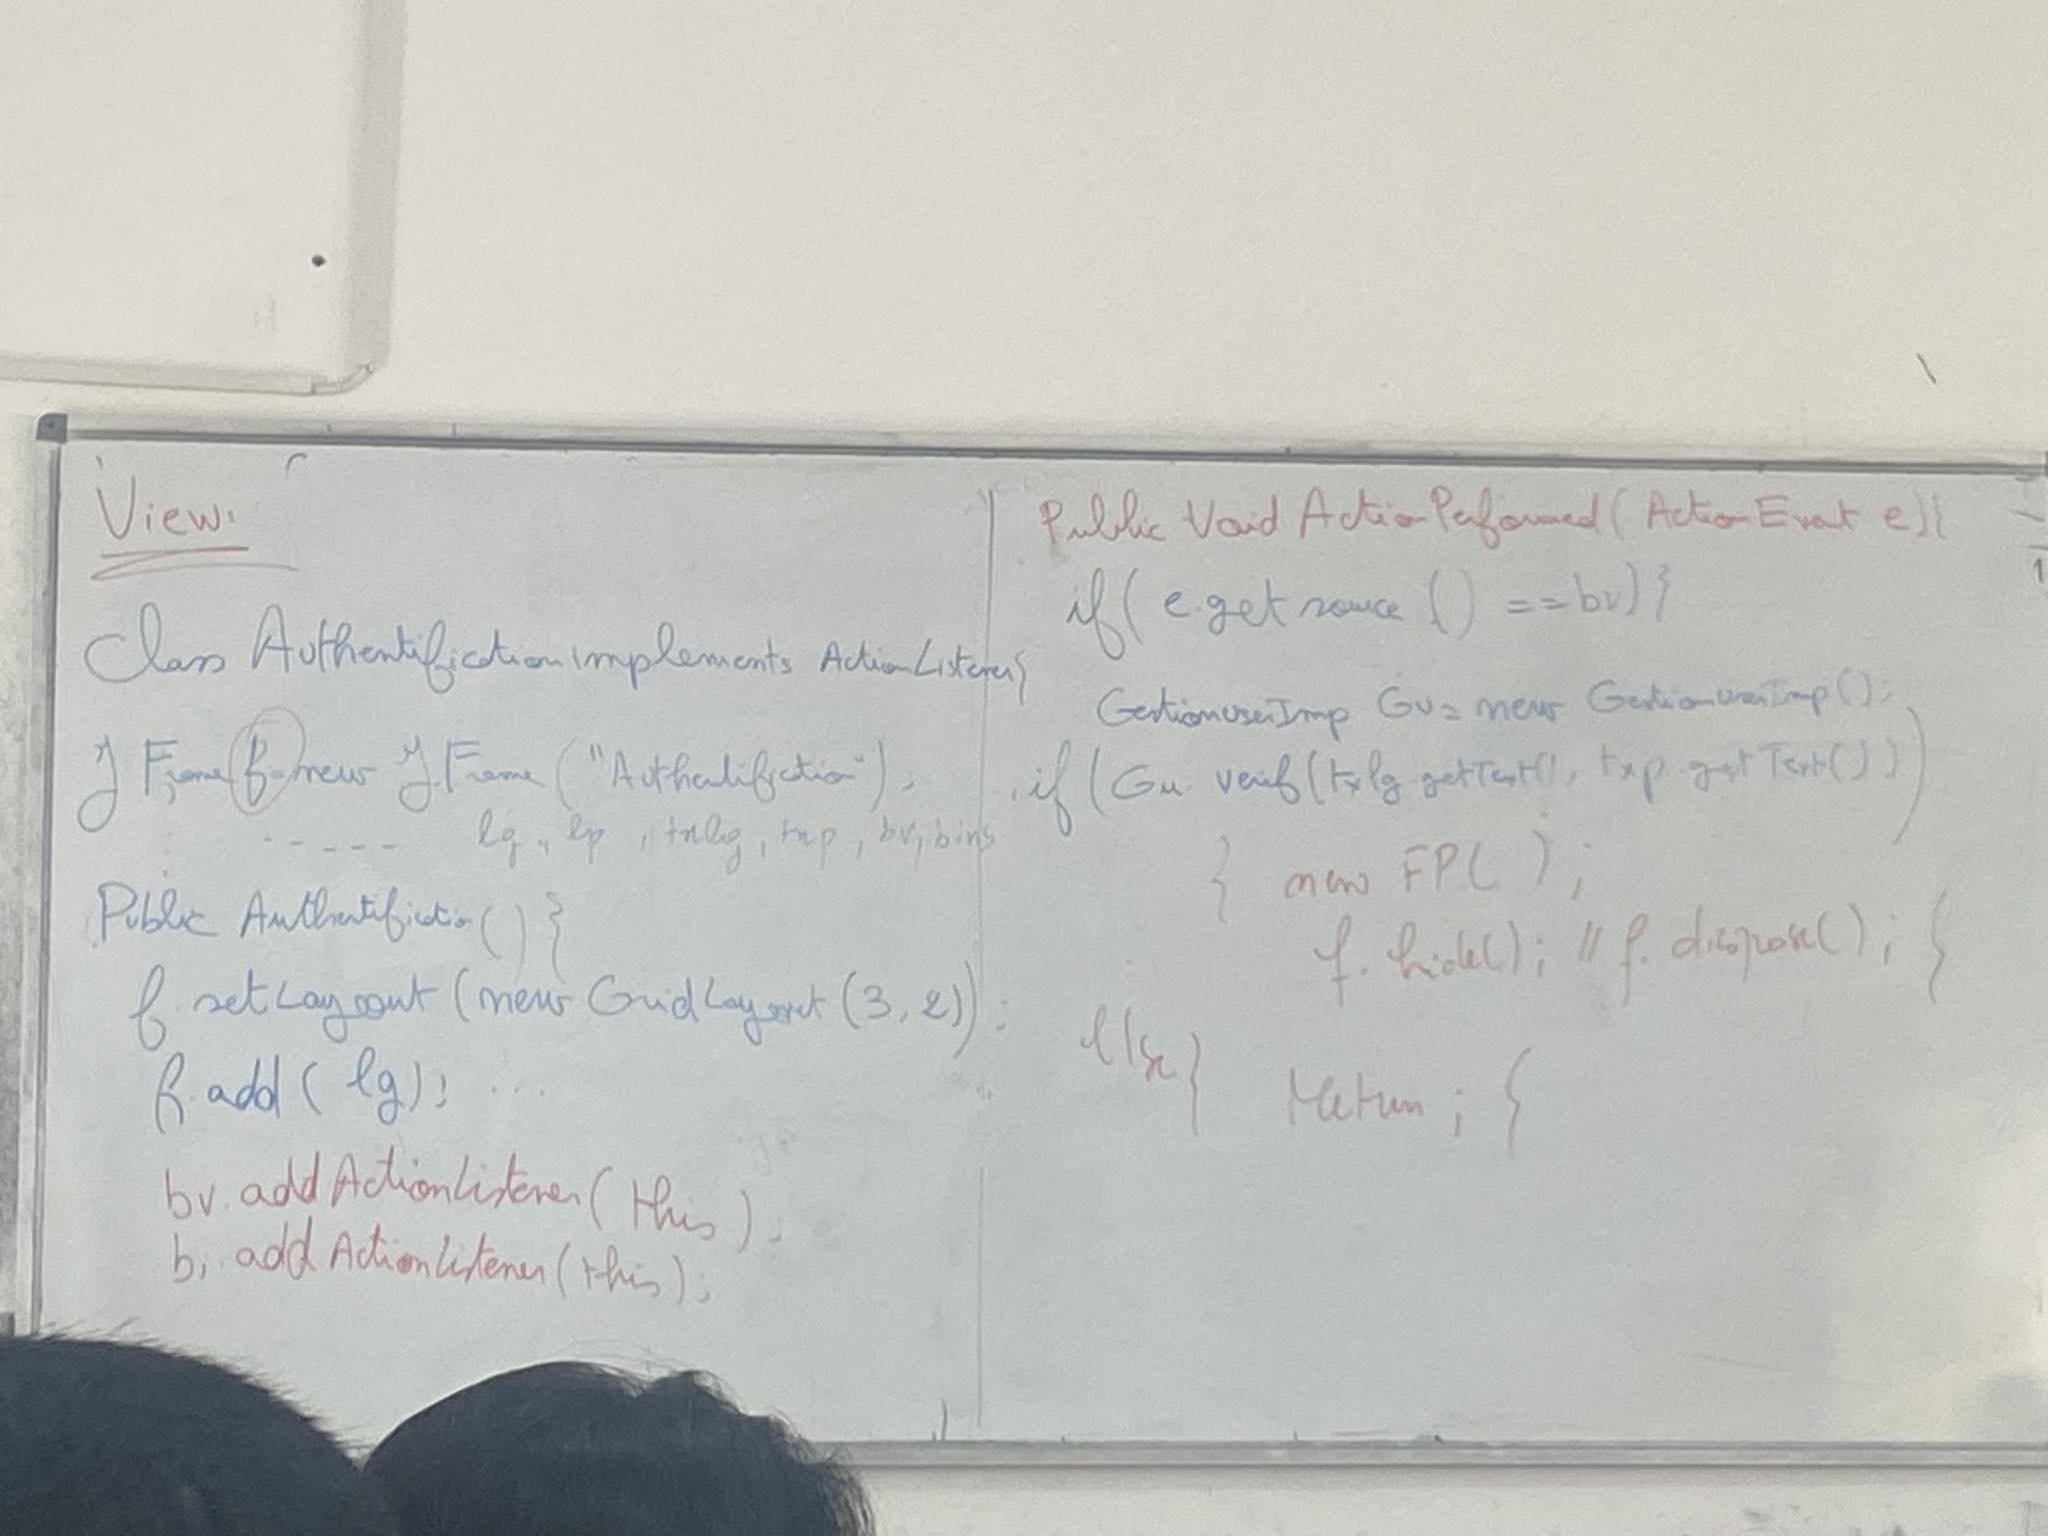 View:
Class Authentification implements ActionListener{
JFrame f=new JFrame("Authentification");
: ----- lg, lp, txlg, txp, bv, bins
Public Authentification(){
f.setLayout(new GridLayout(3,2));
f.add(lg); ...
bv.addActionListener(this);
bi.addActionListener(this);
Public Void ActionPerformed(ActionEvent e){
if(e.getsource()==bv){
GestionuserImp Gu= new GestionuserImp();
if(Gu.verif(txlg.getText(), txp.getText()))
{ new FP();
f.hide(); // f.dispose(); }
else{ Return; }